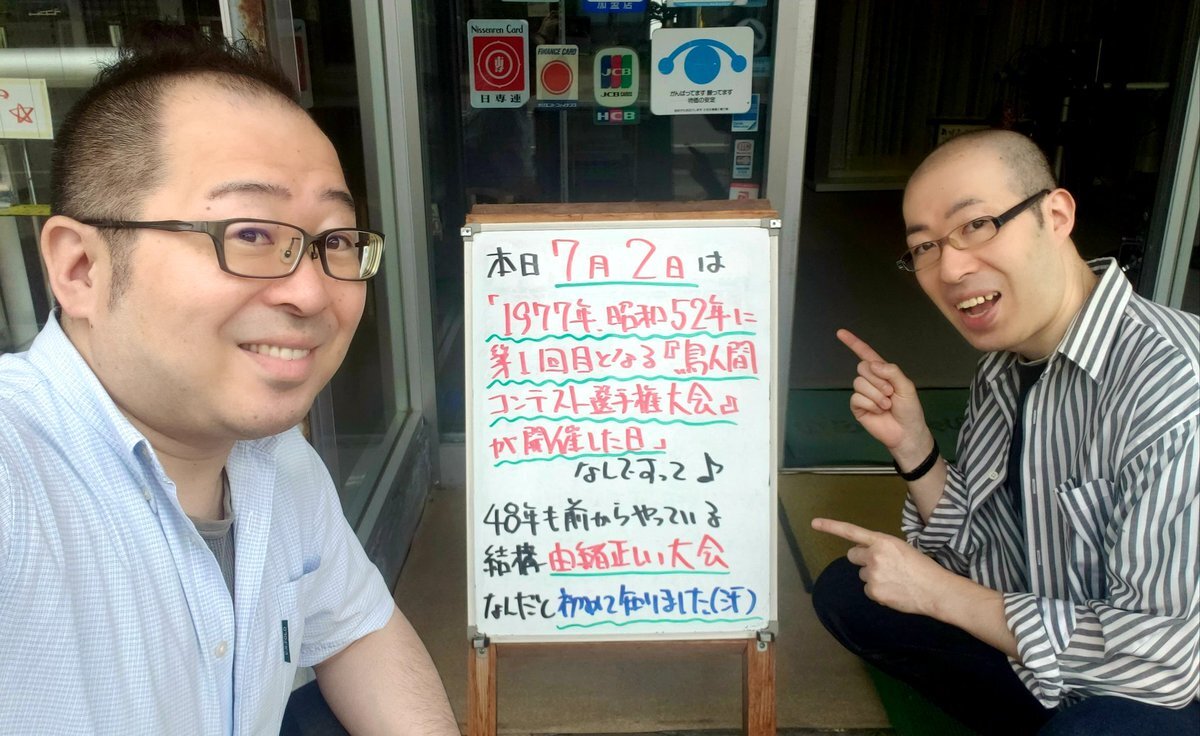 加盟店
Nissenren Card
日専連
FINANCE CARD
JCB
JCB CARDS
HCB
がんばってます 勝ってます
本日7月2日は
「1977年、昭和52年に
第1回目となる『鳥人間
コンテスト選手権大会』
が開催した日」
なんですって♪
48年も前からやっている
結構由緒正しい大会
なんだと初めて知りました(汗)